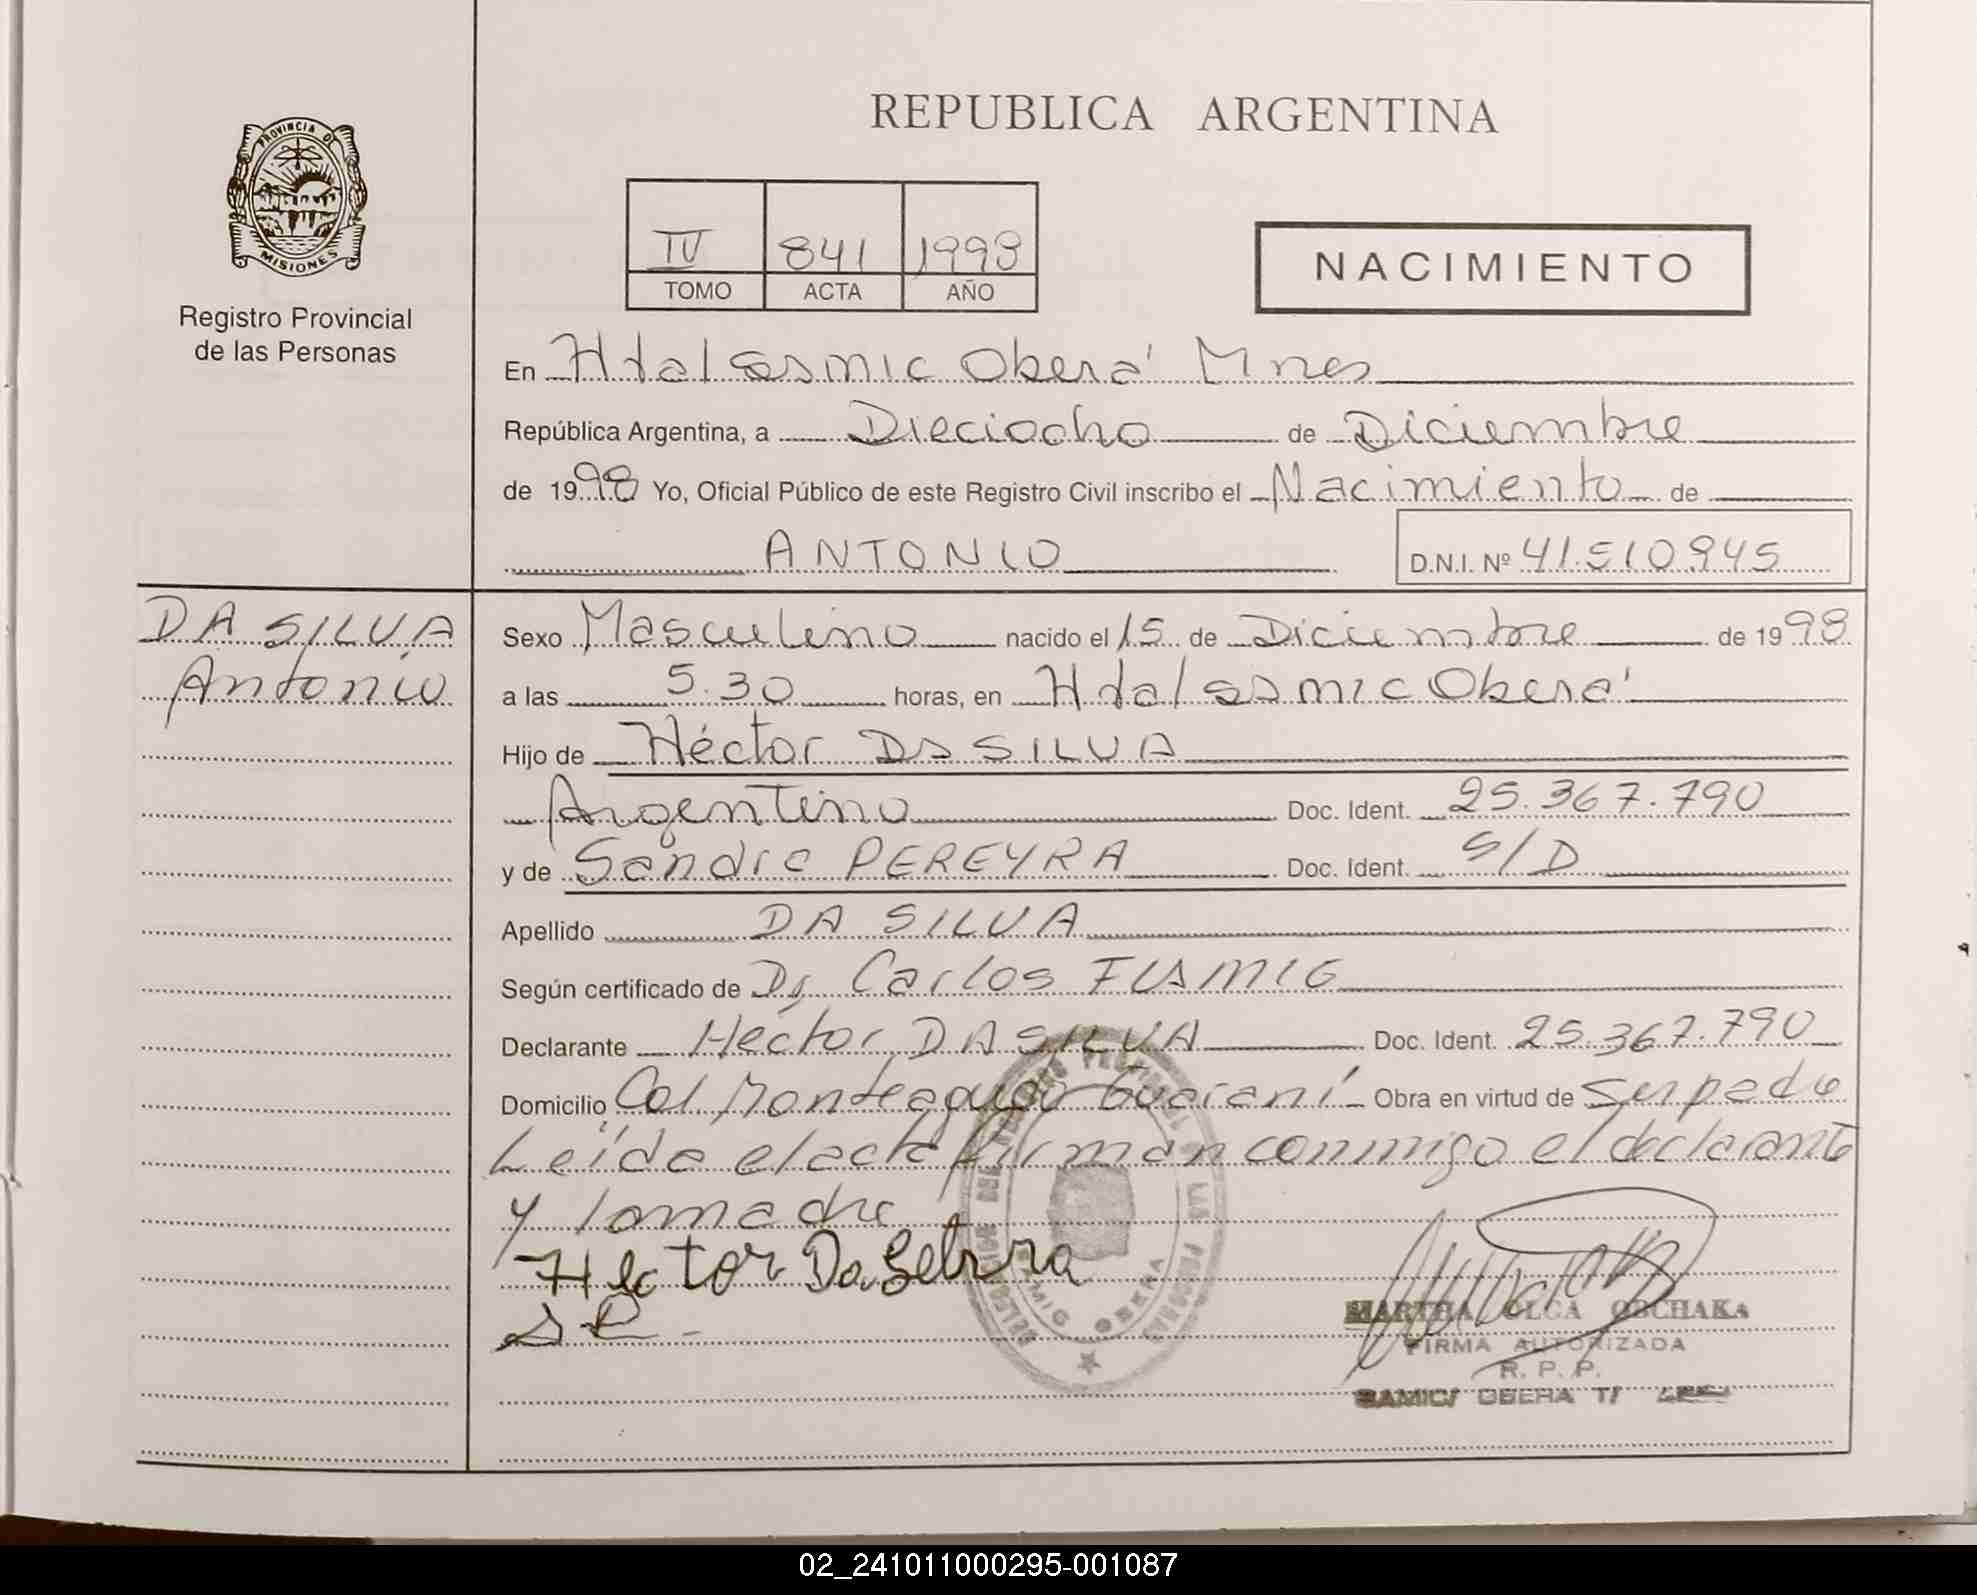 REPUBLICA ARGENTINA
PROVINCIA DE
MISIONES
Registro Provincial
de las Personas
IV 841 1998
TOMO ACTA AÑO
NACIMIENTO
En Htal Samic Oberá Mnes
República Argentina, a Dieciocho de Diciembre
de 1998 Yo, Oficial Público de este Registro Civil inscribo el Nacimiento de
ANTONIO D.N.I. Nº 41.510.945
DA SILVA
Antonio
Sexo Masculino nacido el 15 de Diciembre de 1998
a las 5.30 horas, en Htal Samic Oberá
Hijo de Héctor DA SILVA
Argentino Doc. Ident. 25.367.790
y de Sandra PEREYRA Doc. Ident. S/D
Apellido DA SILVA
Según certificado de Dr Carlos
Declarante Héctor DA SILVA Doc. Ident. 25.367.790
Domicilio Col Monteagudo Guaraní Obra en virtud de Ser padre
Leída el acta firman conmigo el declarante
y la madre
Hector Da
MARTHA OLGA OBCHAKA
FIRMA AUTORIZADA
R. P. P.
SAMIC OBERA
02_241011000295-001087